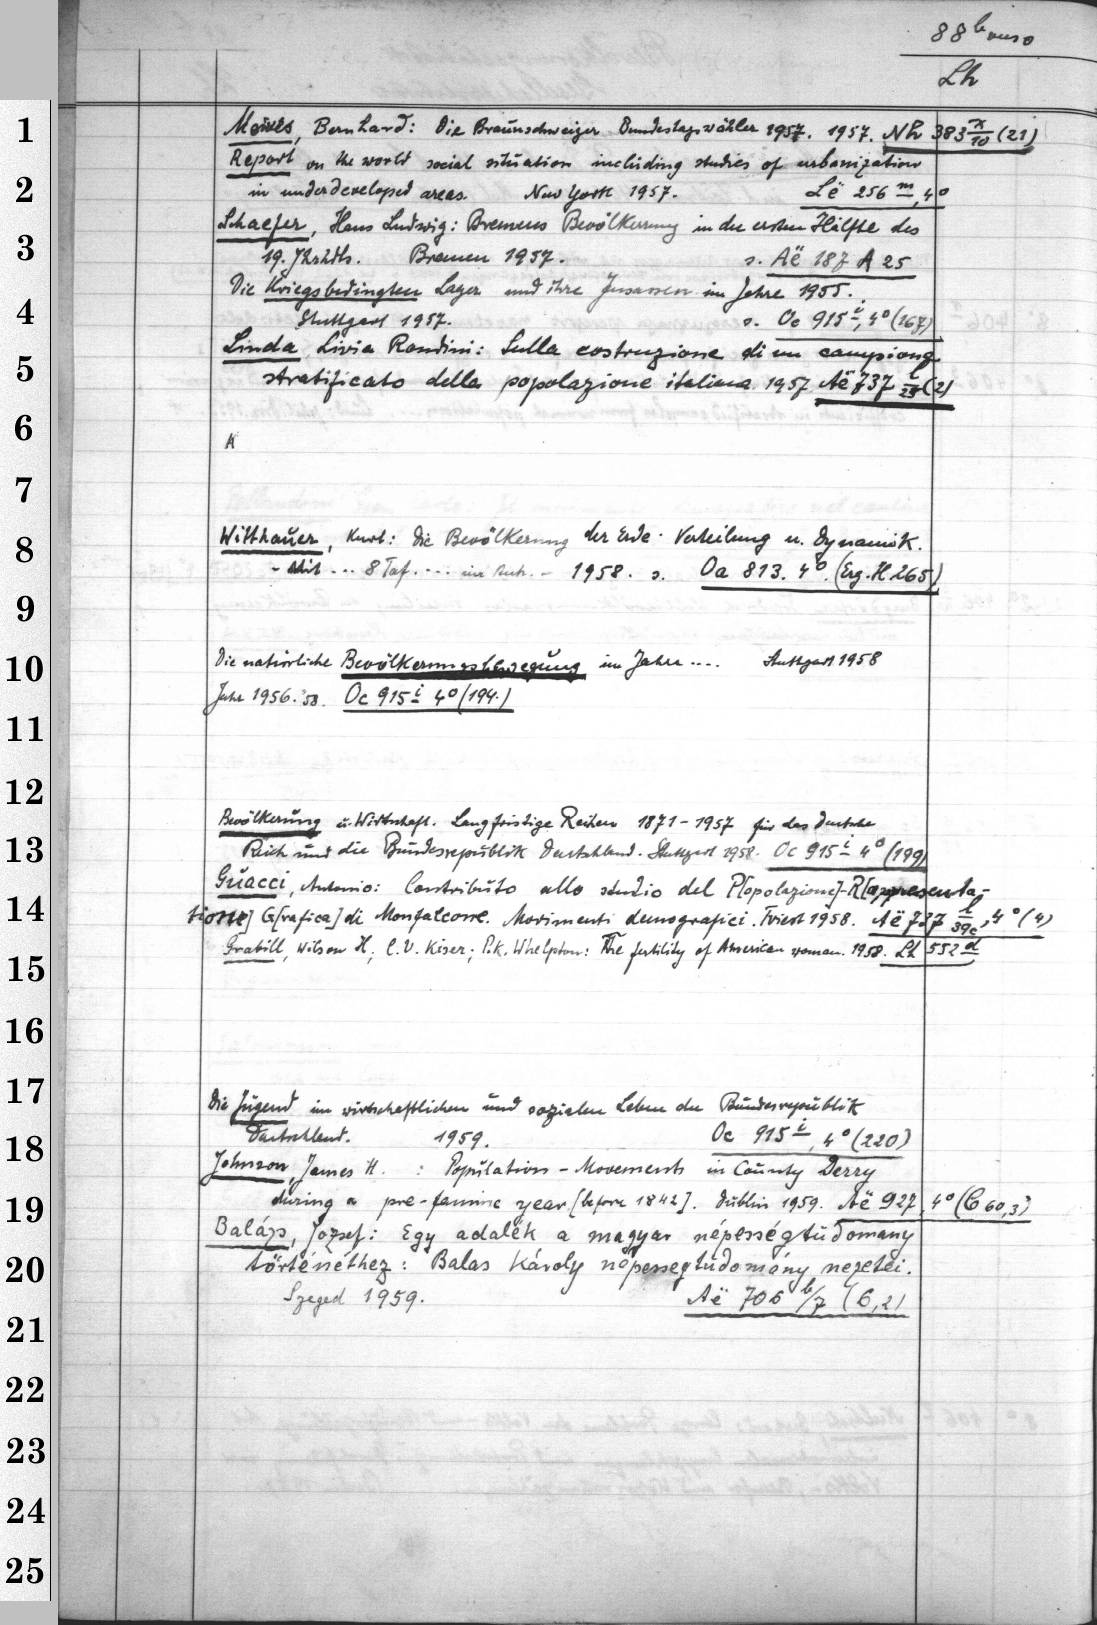 88 b verso
Lh
1
Mewes, Bernhard: Die Braunschweiger Bundestagswähler 1957. 1957. Nh 383 x/10 (21)
Report on the world social situation including studies of urbanization
2
in underdeveloped areas. New York 1957. Lë 256 m, 4°
Schaefer, Hans Ludwig: Bremens Bevölkerung in der ersten Hälfte des
3
19. Jhrhdts. Bremen 1957. s. Aë 187 A 25
Die Kriegsbedingten Lager und ihre Insassen im Jahre 1955.
4
Stuttgart 1957. s. Oc 915 i, 4° (167)
Linda, Livia Rondini: Sulla costruzione di un campione
5
stratificato della popolazione italiana 1957 Aë 737 i/25 (2)
6
K
7
Witthauer, Kurt: Die Bevölkerung der Erde. Verteilung u. Dynamik.
8
- Mit ... 8 Taf. ... - 1958. s. Oa 813. 4°. (Erg. H. 265)
9
Die natürliche Bevölkerungsbewegung im Jahre .... Stuttgart 1958
10
Jahr 1956. '58. Oc 915 i 4° (194.)
11
12
Bevölkerung u. Wirtschaft. Langfristige Reihen 1871-1957 für das Deutsche
13
Reich und die Bundesrepublik Deutschland. Stuttgart 1958. Oc 915 i 4° (199)
Guacci, Antonio: Contributo allo studio del P[opolazione]-R[appresenta-
14
tione] G[rafica] di Monfalcone. Movimenti demografici. Triest 1958. Aë 737 i/39c, 4° (4)
Grabill, Wilson H., C.V. Kiser; P.K. Whelpton: The fertility of American women. 1958. Lh 552 d
15
16
17
Die Jugend im wirtschaftlichen und sozialen Leben der Bundesrepublik
18
Deutschland. 1959. Oc 915 i, 4° (220)
Johnson, James H. : Population-Movements in County Derry
19
during a pre-famine year [before 1842]. Dublin 1959. Aë 927 4° (C 60,3)
Balázs, József: Egy adalék a magyar népességtudomany
20
történéthez: Balas Károly népességtudomány nezetei.
Szeged 1959. Aë 706 b/7 (6,2)
21
22
23
24
25